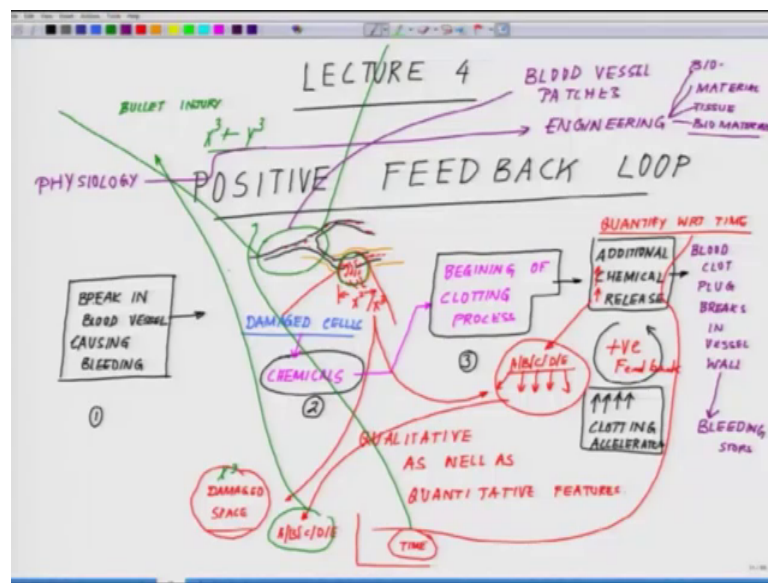 LECTURE 4
BULLET INJURY
BLOOD VESSEL
PATCHES
BIO-
MATERIAL
TISSUE
BIO MATERIAL
ENGINEERING
x³ + y³
PHYSIOLOGY
POSITIVE FEEDBACK LOOP
QUANTIFY WRT TIME
BREAK IN
BLOOD VESSEL
CAUSING
BLEEDING
①
DAMAGED CELLS
CHEMICALS
②
BEGINING OF
CLOTTING
PROCESS
③
ADDITIONAL
CHEMICAL
RELEASE
+ve
Feedback
CLOTTING
ACCELERATES
BLOOD
CLOT
PLUG
BREAKS
IN
VESSEL
WALL
BLEEDING
STOPS
A/B/C/D/E
QUALITATIVE
AS NELL AS
QUANTITATIVE FEATURES
x³
DAMAGED
SPACE
A/B/C/D/E
TIME